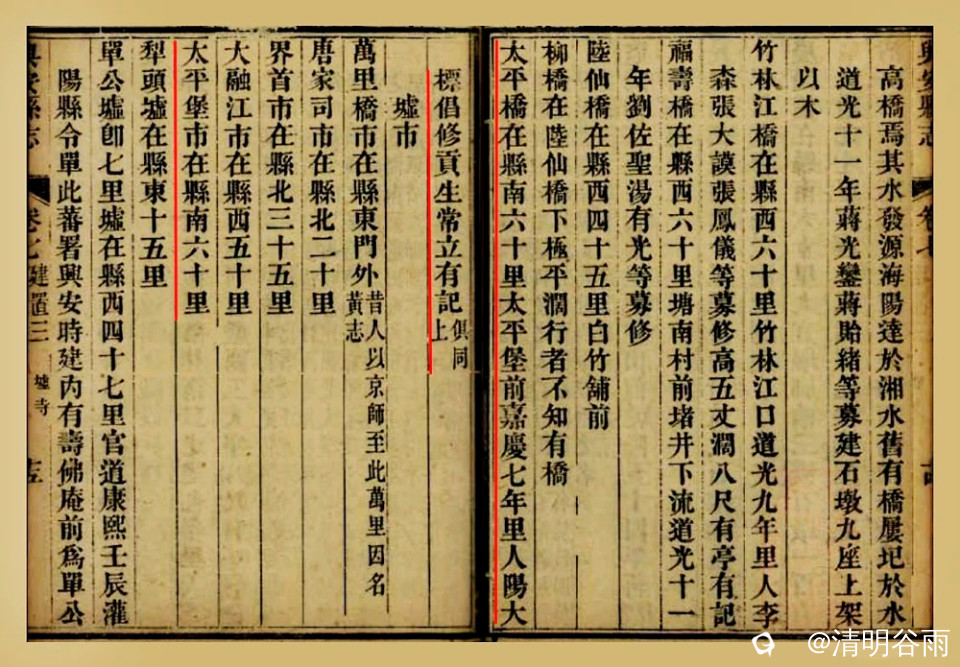 高橋焉其水發源海陽達於湘水舊有橋屢圯於水
道光十一年蔣光鑾蔣貽緒等募建石墩九座上架
以木
竹林江橋在縣西六十里竹林江口道光九年里人李
森張大謨張鳳儀等募修高五丈濶八尺有亭有記
福壽橋在縣西六十里塘南村前堵井下流道光十一
年劉佐聖湯有光等募修
陸仙橋在縣西四十五里白竹舖前
柳橋在陸仙橋下極平濶行者不知有橋
太平橋在縣南六十里太平堡前嘉慶七年里人陽大
標倡修貢生常立有記俱同上
墟市
萬里橋市在縣東門外昔人以京師至此萬里因名黃志
唐家司市在縣北二十里
界首市在縣北三十五里
大融江市在縣西五十里
太平堡市在縣南六十里
犁頭墟在縣東十五里
單公墟卽七里墟在縣西四十七里官道康熙壬辰灌
陽縣令單此蕃署興安時建內有壽佛庵前爲單公
興安縣志
卷七 建置三 墟寺
@清明谷雨